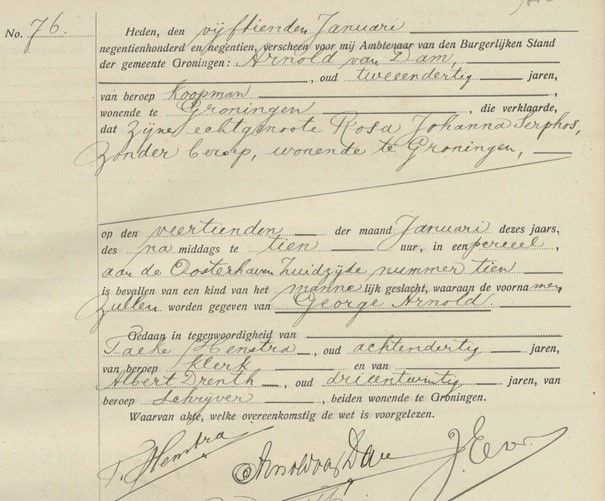 No. 76.
Heden, den vijftienden Januari
negentienhonderd en negentien, verscheen voor mij Ambtenaar van den Burgerlijken Stand
der gemeente Groningen: Arnold van Dam,
, oud tweeendertig jaren,
van beroep Koopman ,
wonende te Groningen , die verklaarde,
dat Zijne echtgenoote Rosa Johanna Serphos,
zonder beroep, wonende te Groningen,
op den veertienden der maand Januari dezes jaars,
des na middags te tien uur, in een perceel ,
aan de Oosterhaven Zuidzijde nummer tien
is bevallen van een kind van het manne lijk geslacht, waaraan de voorna men
zullen worden gegeven van George Arnold.
Gedaan in tegenwoordigheid van
Taeke Henstra , oud achtendertig jaren,
van beroep Klerk en van
Albert Drenth , oud drieentwintig jaren, van
beroep Schrijver , beiden wonende te Groningen.
Waarvan akte, welke overeenkomstig de wet is voorgelezen.
T. Henstra Arnold van Dam